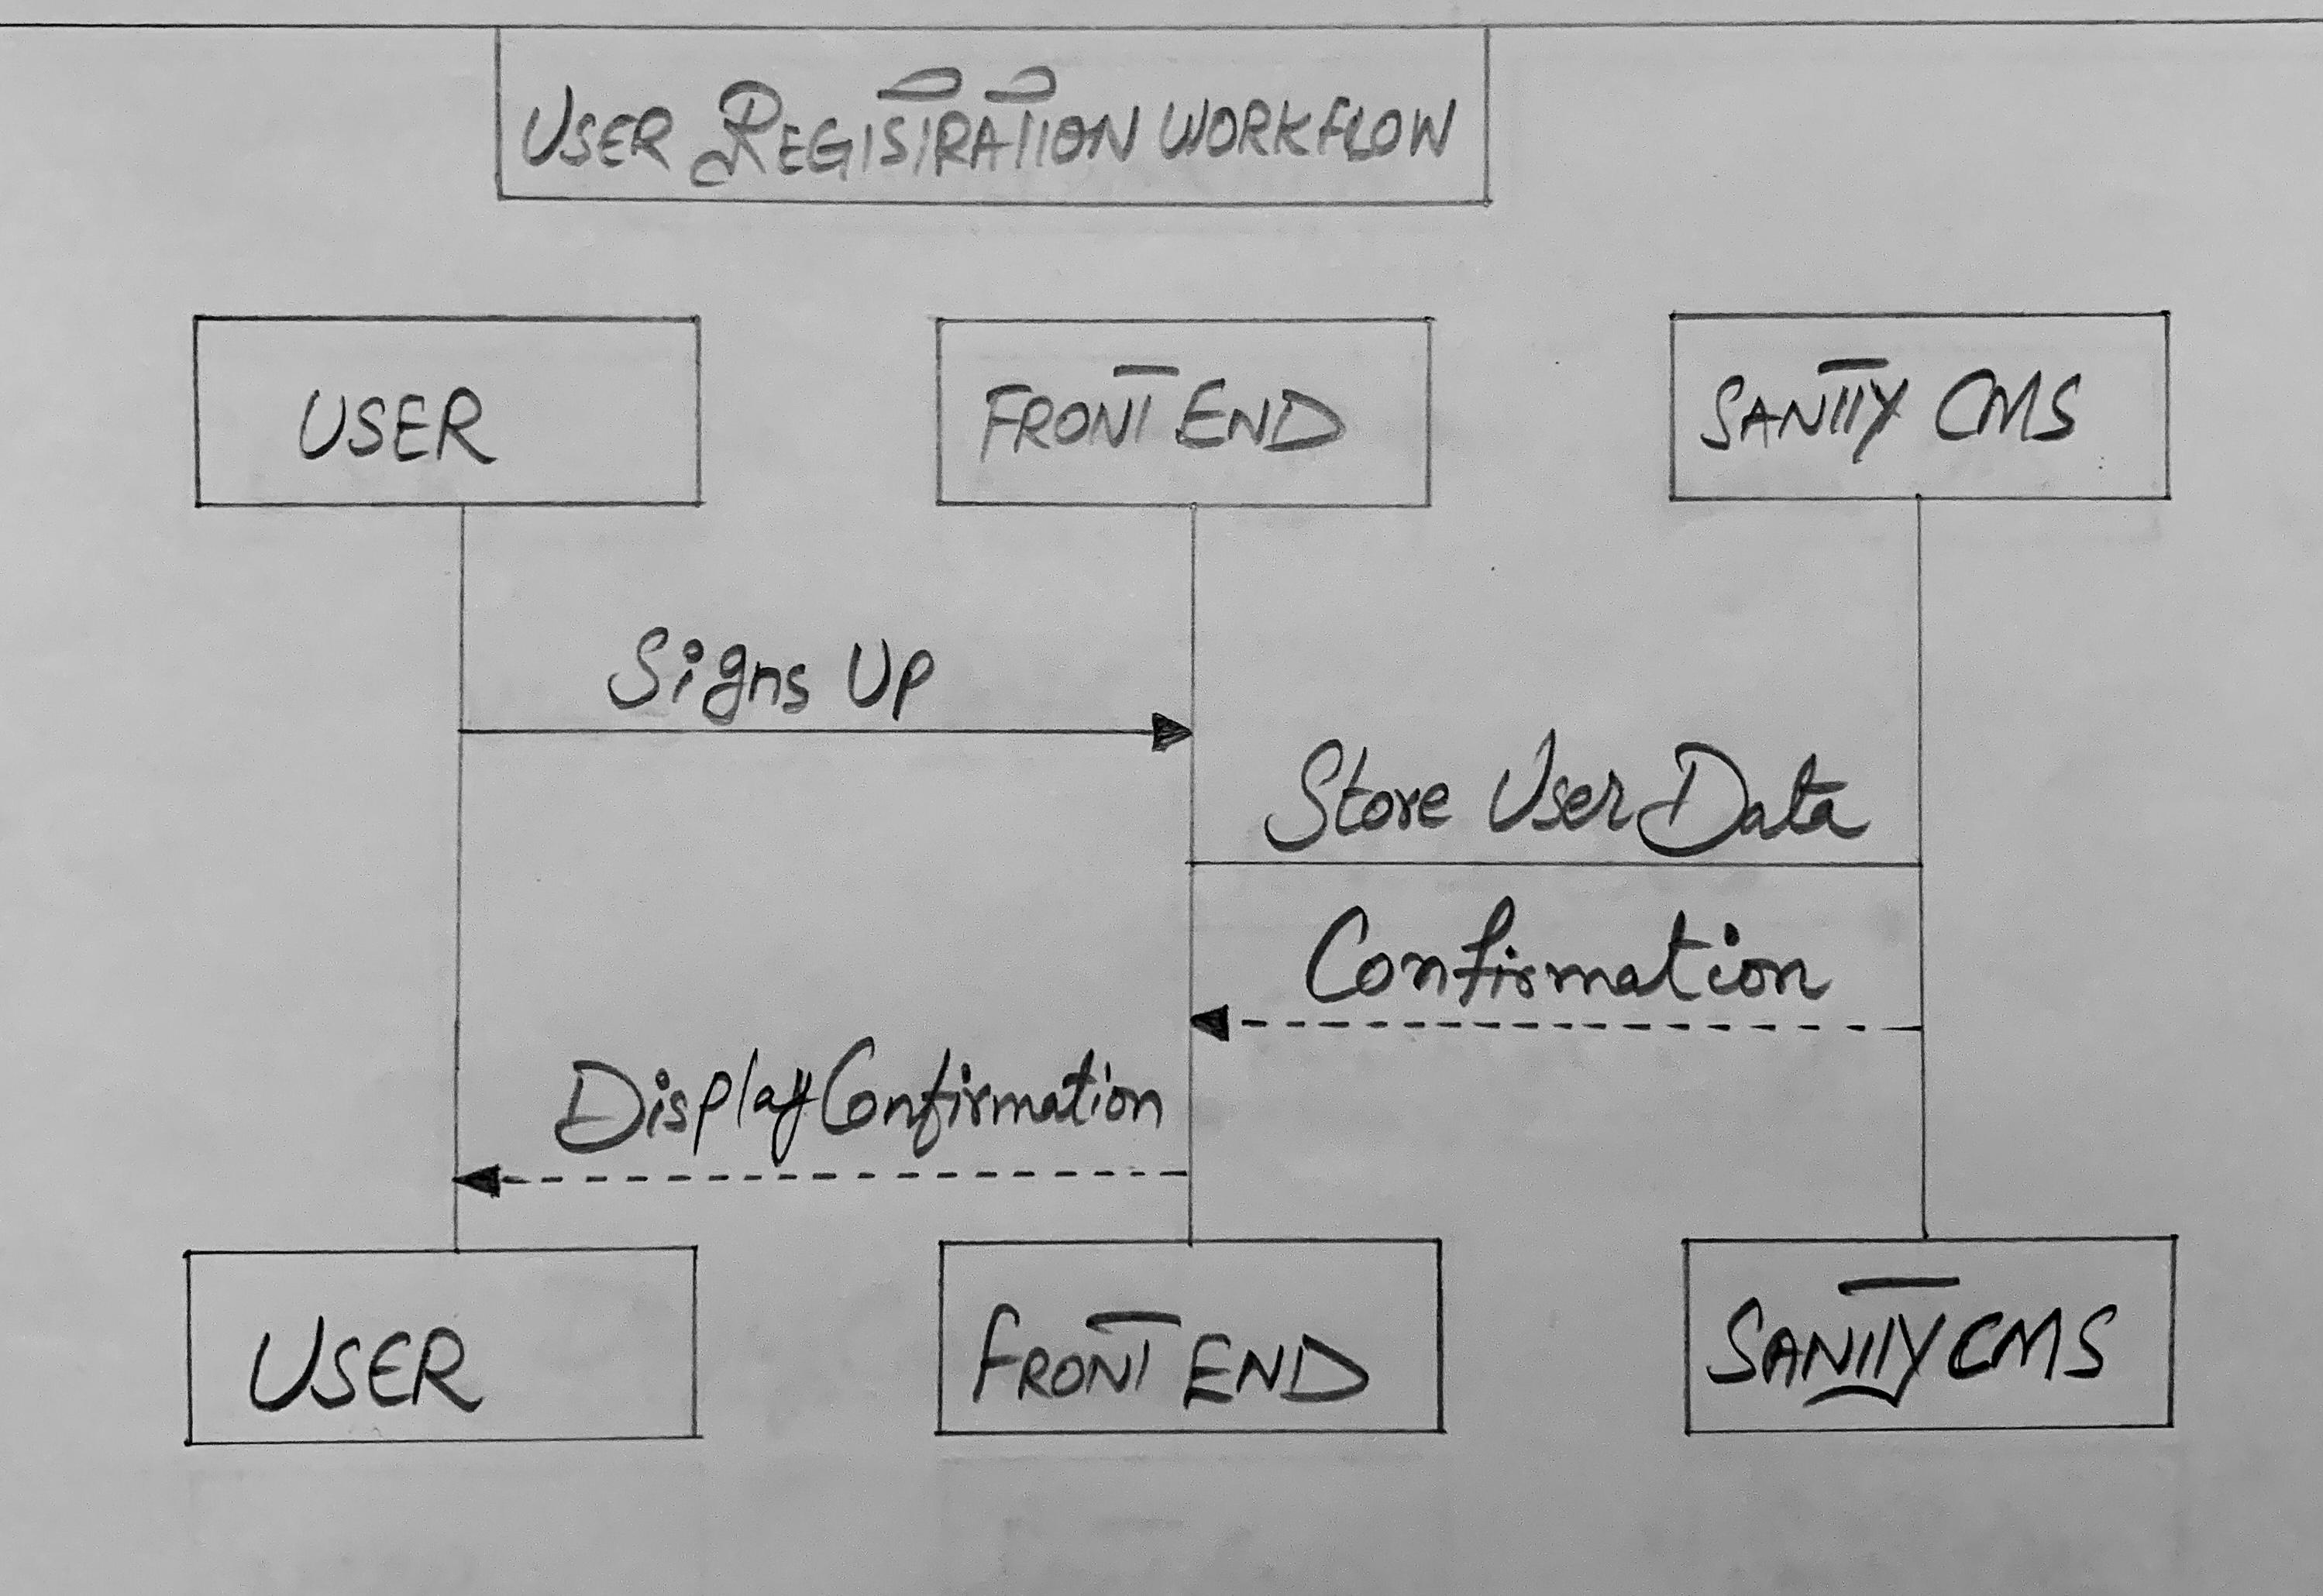 USER REGISTRATION WORKFLOW
USER
FRONT END
SANITY CMS
Signs Up
Store User Data
Confirmation
Display Confirmation
USER
FRONT END
SANITY CMS